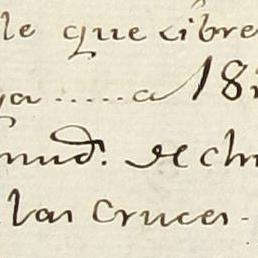 le que libre
ya ...... a 18
mud. de ch
las Cruces.